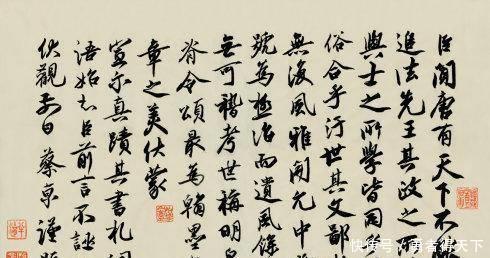 臣聞唐有天下不
進法先王其政之
與士之所學皆因
俗合乎汙世其文鄙
無復風雅開元中
號為極治而遺風餘
無可稽考世稱明皇
脊令頌最為翰墨
章之美伏蒙
宣示真蹟其書札
語始知臣前言不誣
伏觀日蔡京謹
快传号/勇者得天下